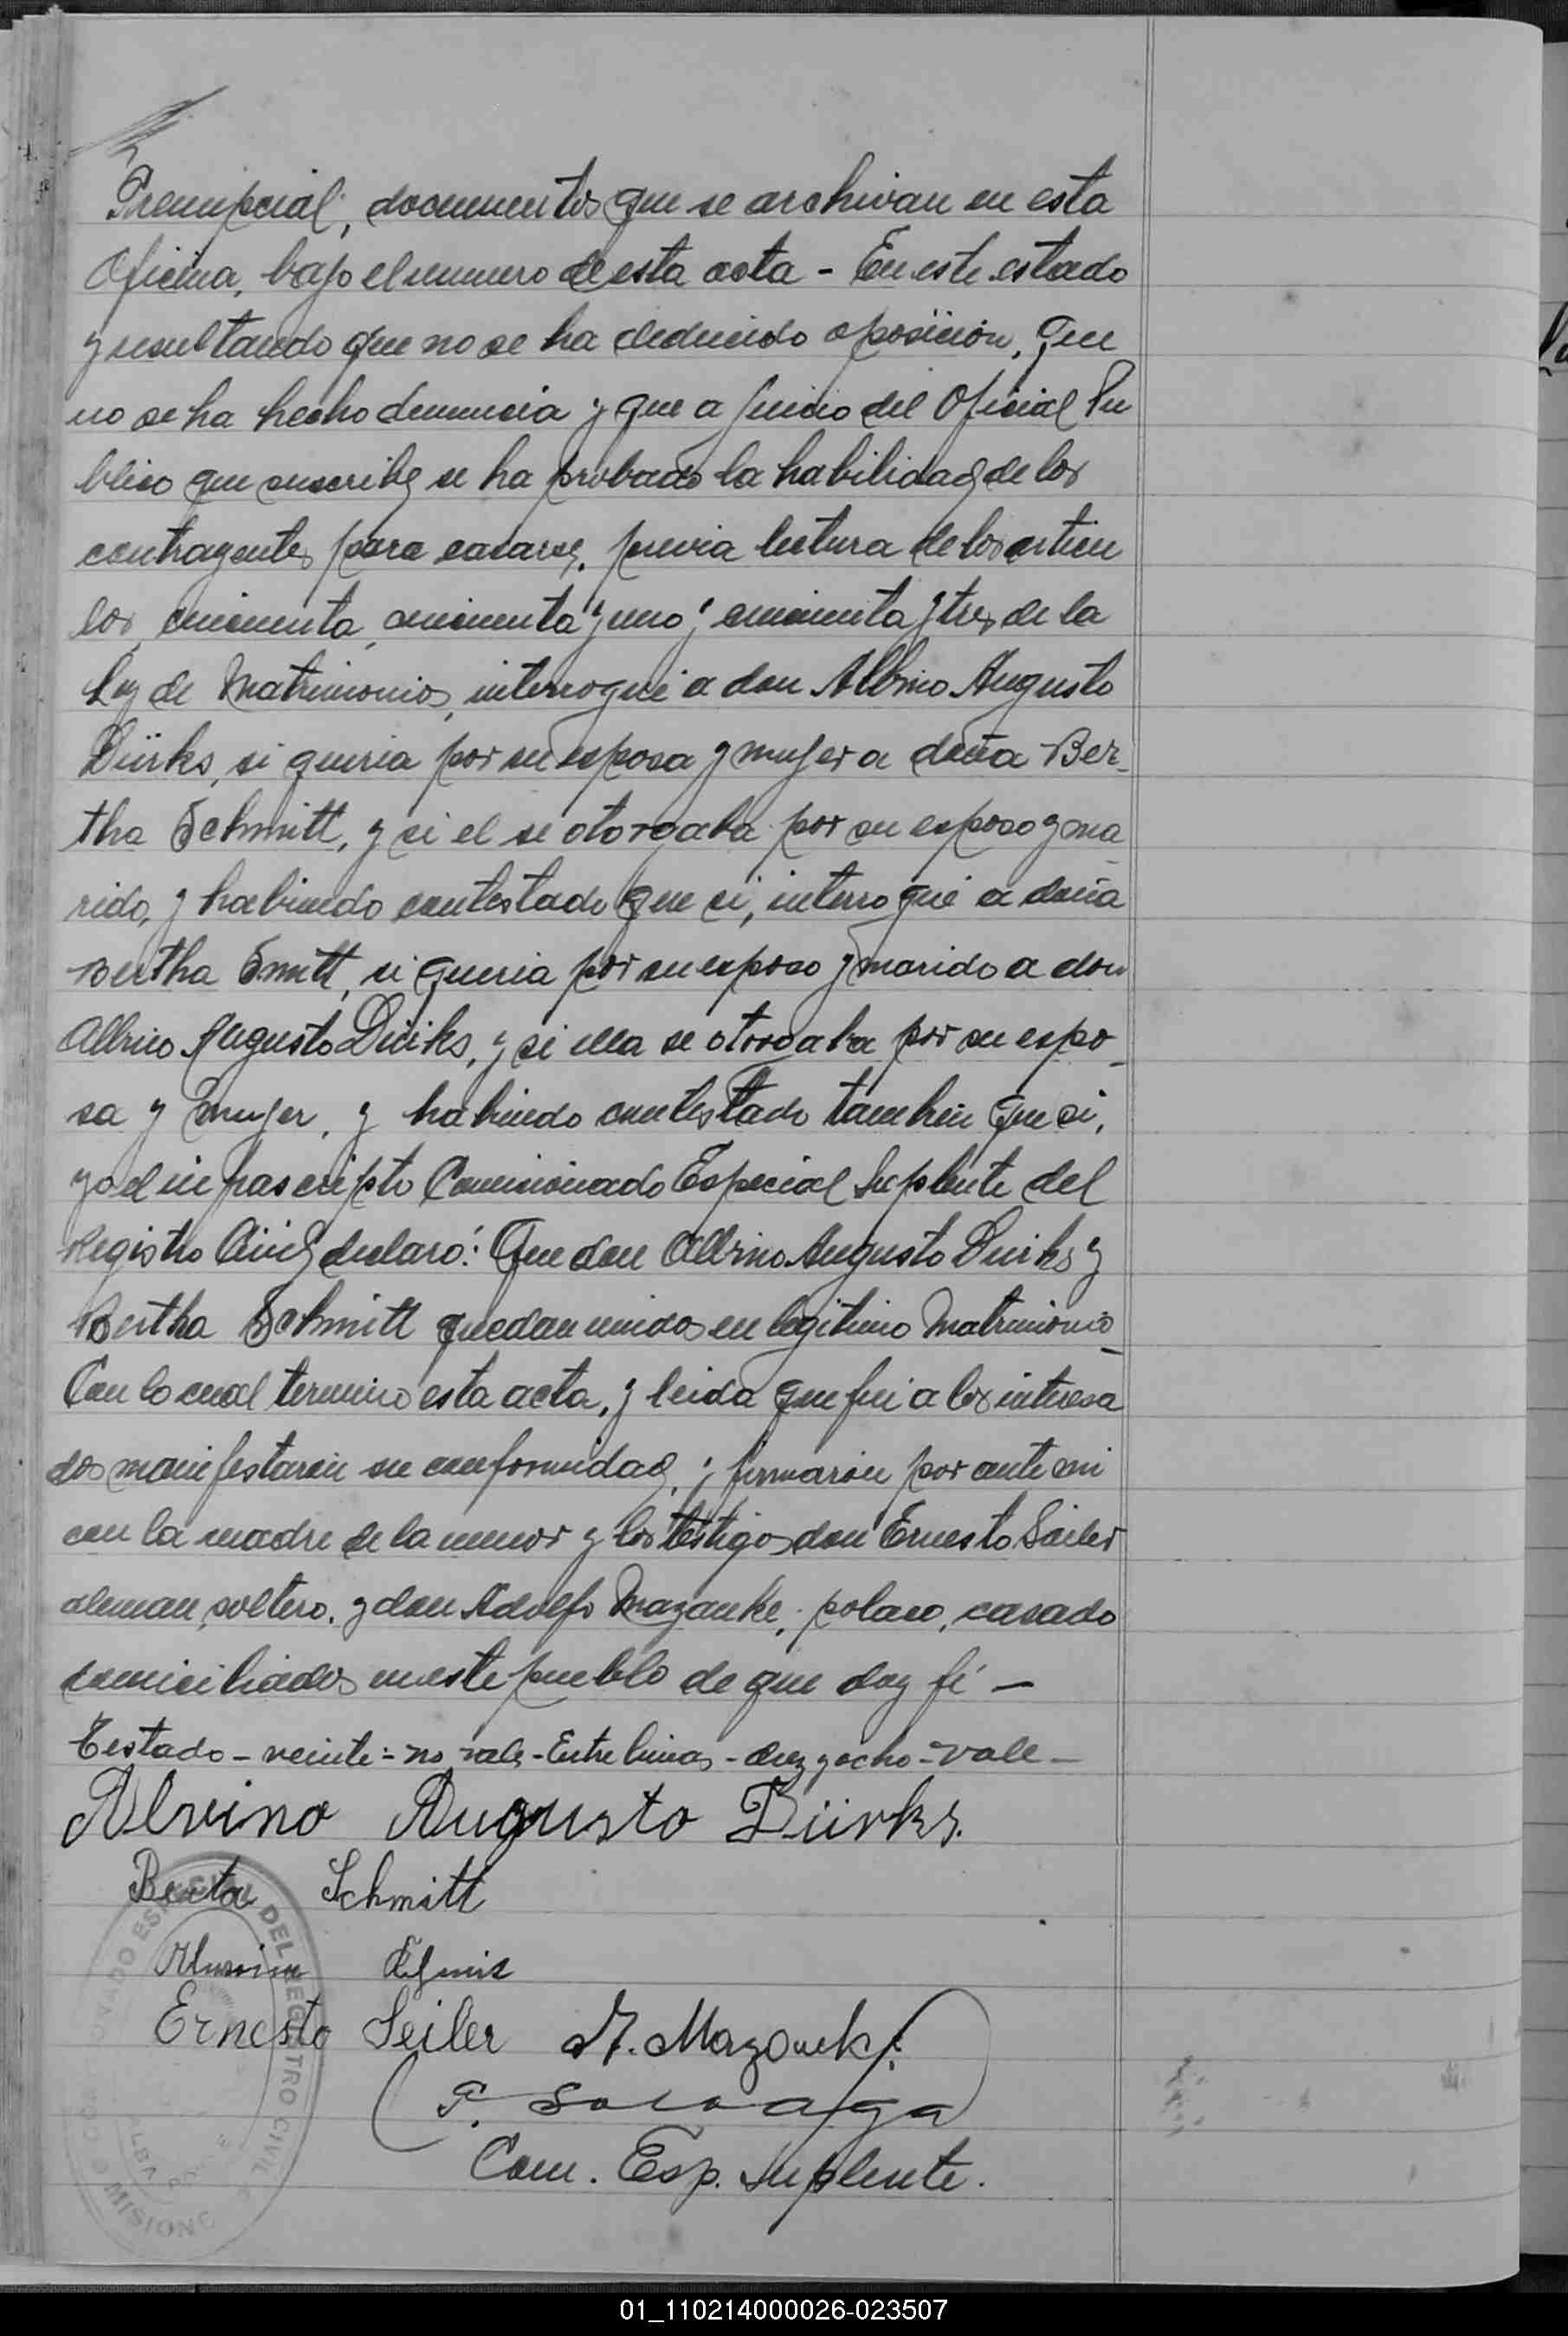 Prenupcial, documentos que se archivan en esta
Oficina, bajo el numero de esta acta - En este estado
y resultando que no se ha deducido oposicion, que
no se ha hecho denuncia y que a juicio del Oficial Pu
blico que suscribe se ha probado la habilidad de los
contrayentes para casarse, previa lectura de los articu
los cincuenta, cincuenta y uno y cincuenta y tres de la
Ley de Matrimonios, interrogué a don Albino Augusto
Dürks, si queria por su esposa y mujer a doña Ber-
tha Schmitt, y si el se otorgaba por su esposo y ma
rido, y habiendo contestado que si, interrogué a doña
Bertha Smitt, si queria por su esposo y marido a don
Albino Augusto Dürks, y si ella se otorgaba por su espo-
sa y mujer, y habiendo contestado tambien que si,
yo el infrascripto Comisionado Especial Suplente del
Registro Civil declaró: Que don Albino Augusto Dürks y
Bertha Schmitt quedan unidos en legitimo Matrimonio-
Con lo cual termino esta acta, y leida que fué a los interesa
dos manifestaron su conformidad, y firmaron por ante mi
con la madre de la menor y los testigos don Ernesto Sailer
aleman, soltero, y don Adolfo Mazanke, polaco, casado
domiciliados en este pueblo de que doy fé -
Testado - veinte = no vale - Entre lineas - diez y ocho = vale -
Alvino Augusto Dürks.
Berta Schmitt
Ernesto Seiler A. Mazanek
Com. Esp. Suplente.
DEL REGISTRO CIVIL
MISIONES
01_110214000026-023507